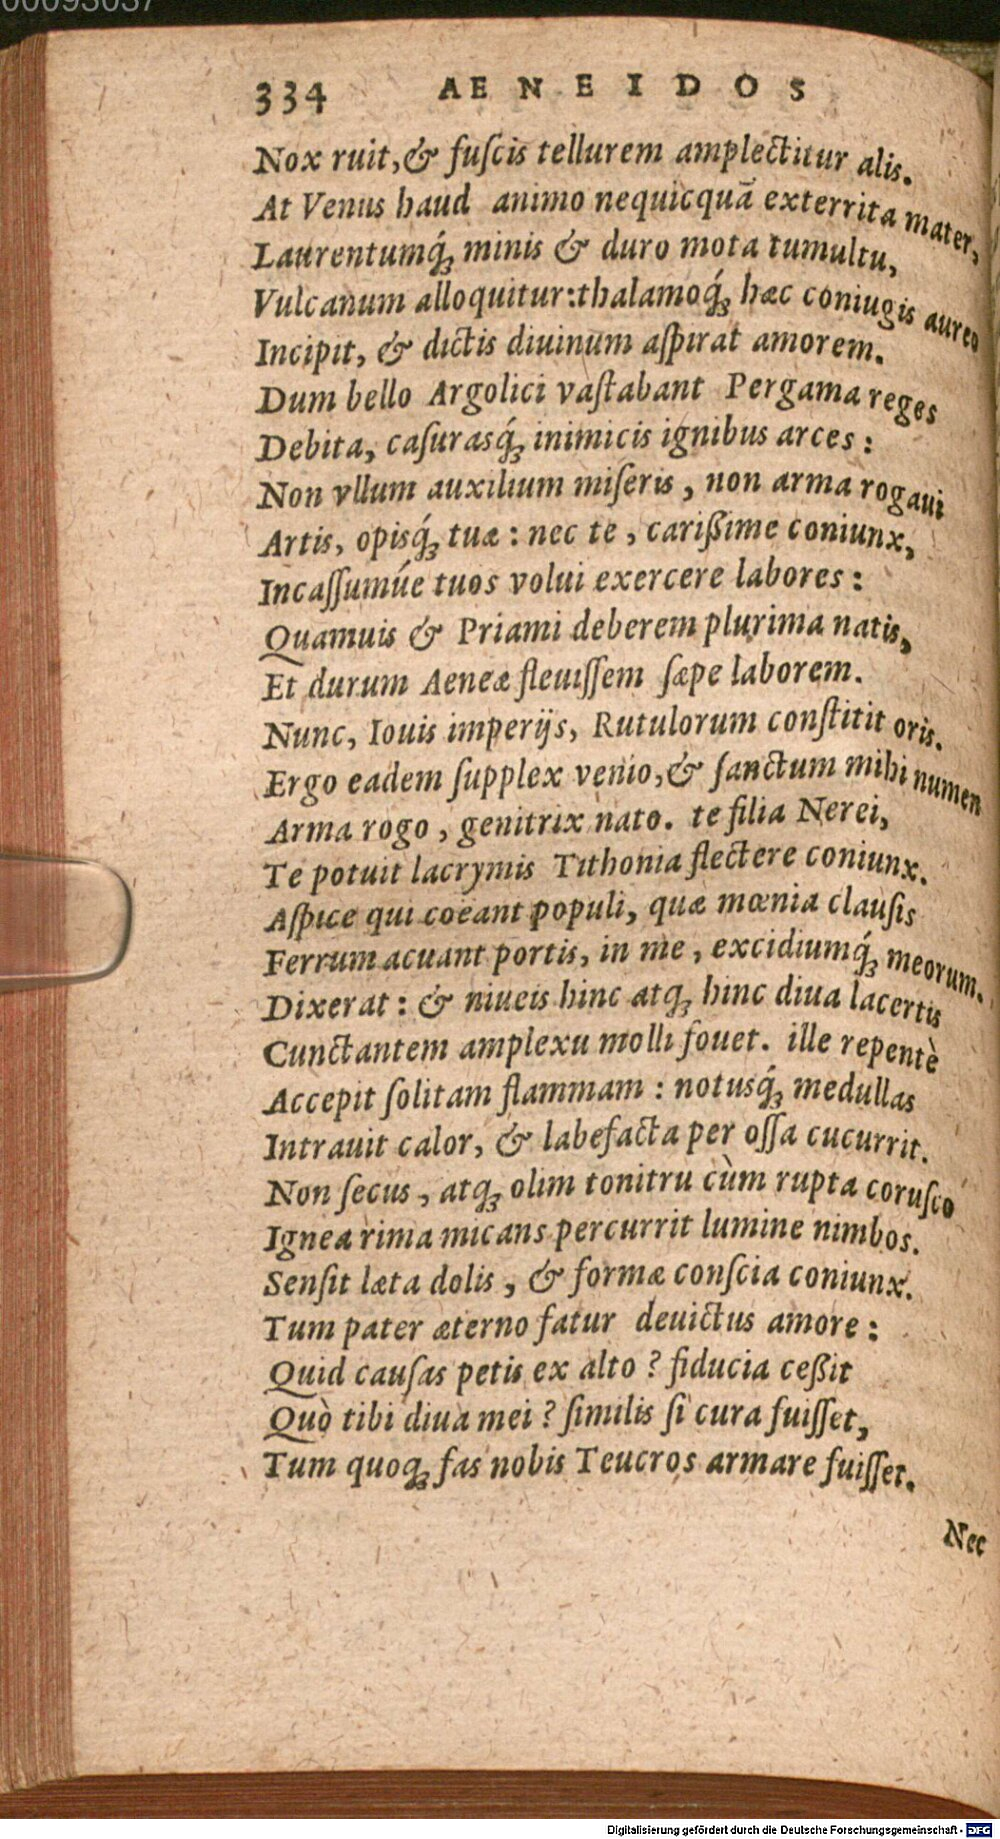 00093037
334 AENEIDOS
Nox ruit,& fuſcis tellurem amplectitur alis.
At Venus haud animo nequicquā exterrita mater,
Laurentumq́ꝫ minis & duro mota tumultu,
Vulcanum alloquitur:thalamoq́ꝫ hæc coniugis aureo
Incipit, & dictis diuinum aſpirat amorem.
Dum bello Argolici vaſtabant Pergama reges
Debita, caſurasq́ꝫ inimicis ignibus arces:
Non vllum auxilium miſeris, non arma rogaui
Artis, opisq́ꝫ tuæ: nec te, carißime coniunx,
Incaſſumúe tuos volui exercere labores:
Quamuis & Priami deberem plurima natis,
Et durum Aeneæ fleuiſſem ſæpe laborem.
Nunc, Iouis imperijs, Rutulorum conſtitit oris.
Ergo eadem ſupplex venio,& ſanctum mihi numen
Arma rogo, genitrix nato. te filia Nerei,
Te potuit lacrymis Tithonia flectere coniunx.
Aſpice qui coëant populi, quæ mœnia clauſis
Ferrum acuant portis, in me, excidiumq́ꝫ meorum.
Dixerat: & niueis hinc atqꝫ hinc diua lacertis
Cunctantem amplexu molli fouet. ille repentè
Accepit ſolitam flammam: notusq́ꝫ medullas
Intrauit calor, & labefacta per oſſa cucurrit.
Non ſecus, atqꝫ olim tonitru cùm rupta coruſco
Ignea rima micans percurrit lumine nimbos.
Senſit læta dolis, & formæ conſcia coniunx.
Tum pater æterno fatur deuictus amore:
Quid cauſas petis ex alto? fiducia ceßit
Quò tibi diua mei? ſimilis ſi cura fuiſſet,
Tum quoqꝫ fas nobis Teucros armare fuiſſet.
Nec
Digitalisierung gefördert durch die Deutsche Forschungsgemeinschaft - DFG